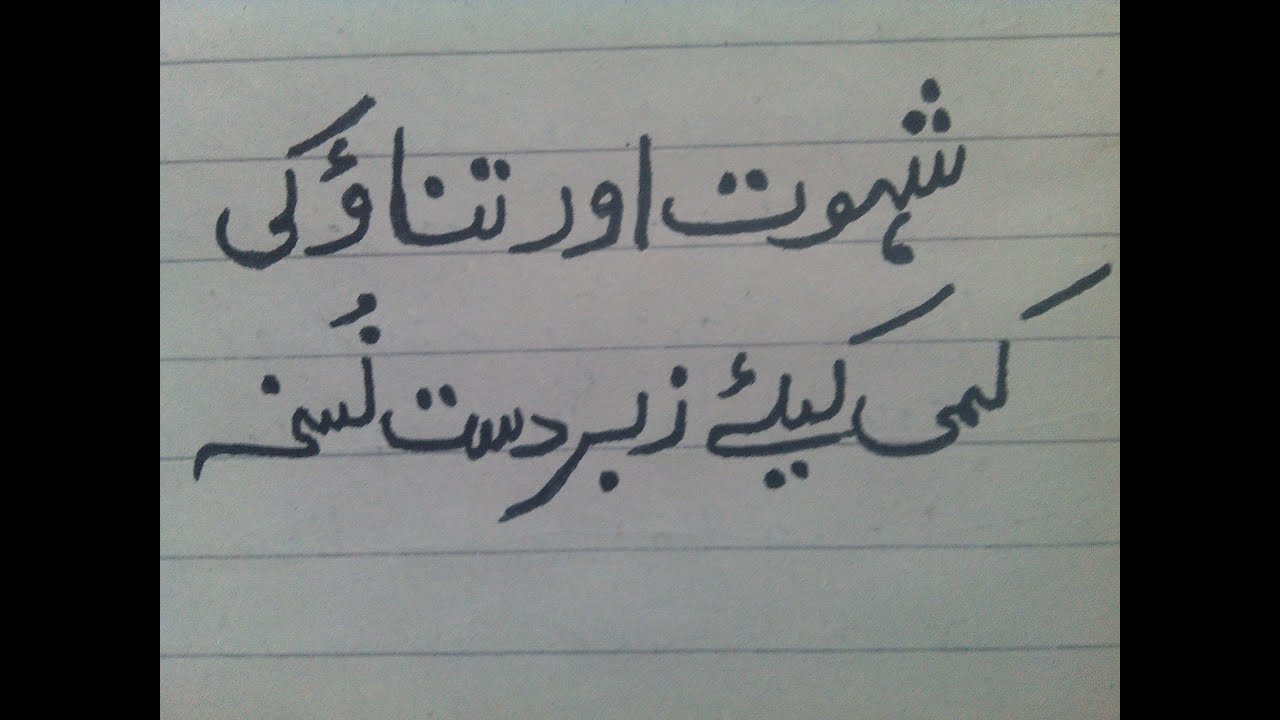 شہوت اور تناؤ کی
کمی کیلئے زبردست نُسخہ